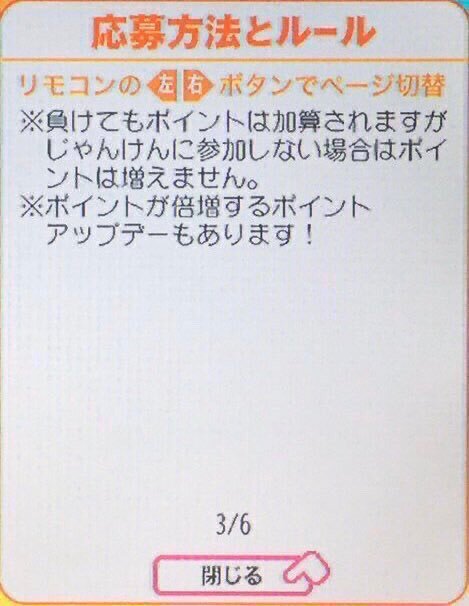 応募方法とルール
リモコンの 左 右 ボタンでページ切替
※負けてもポイントは加算されますが
じゃんけんに参加しない場合はポイ
ントは増えません。
※ポイントが倍増するポイント
アップデーもあります！
3/6
閉じる